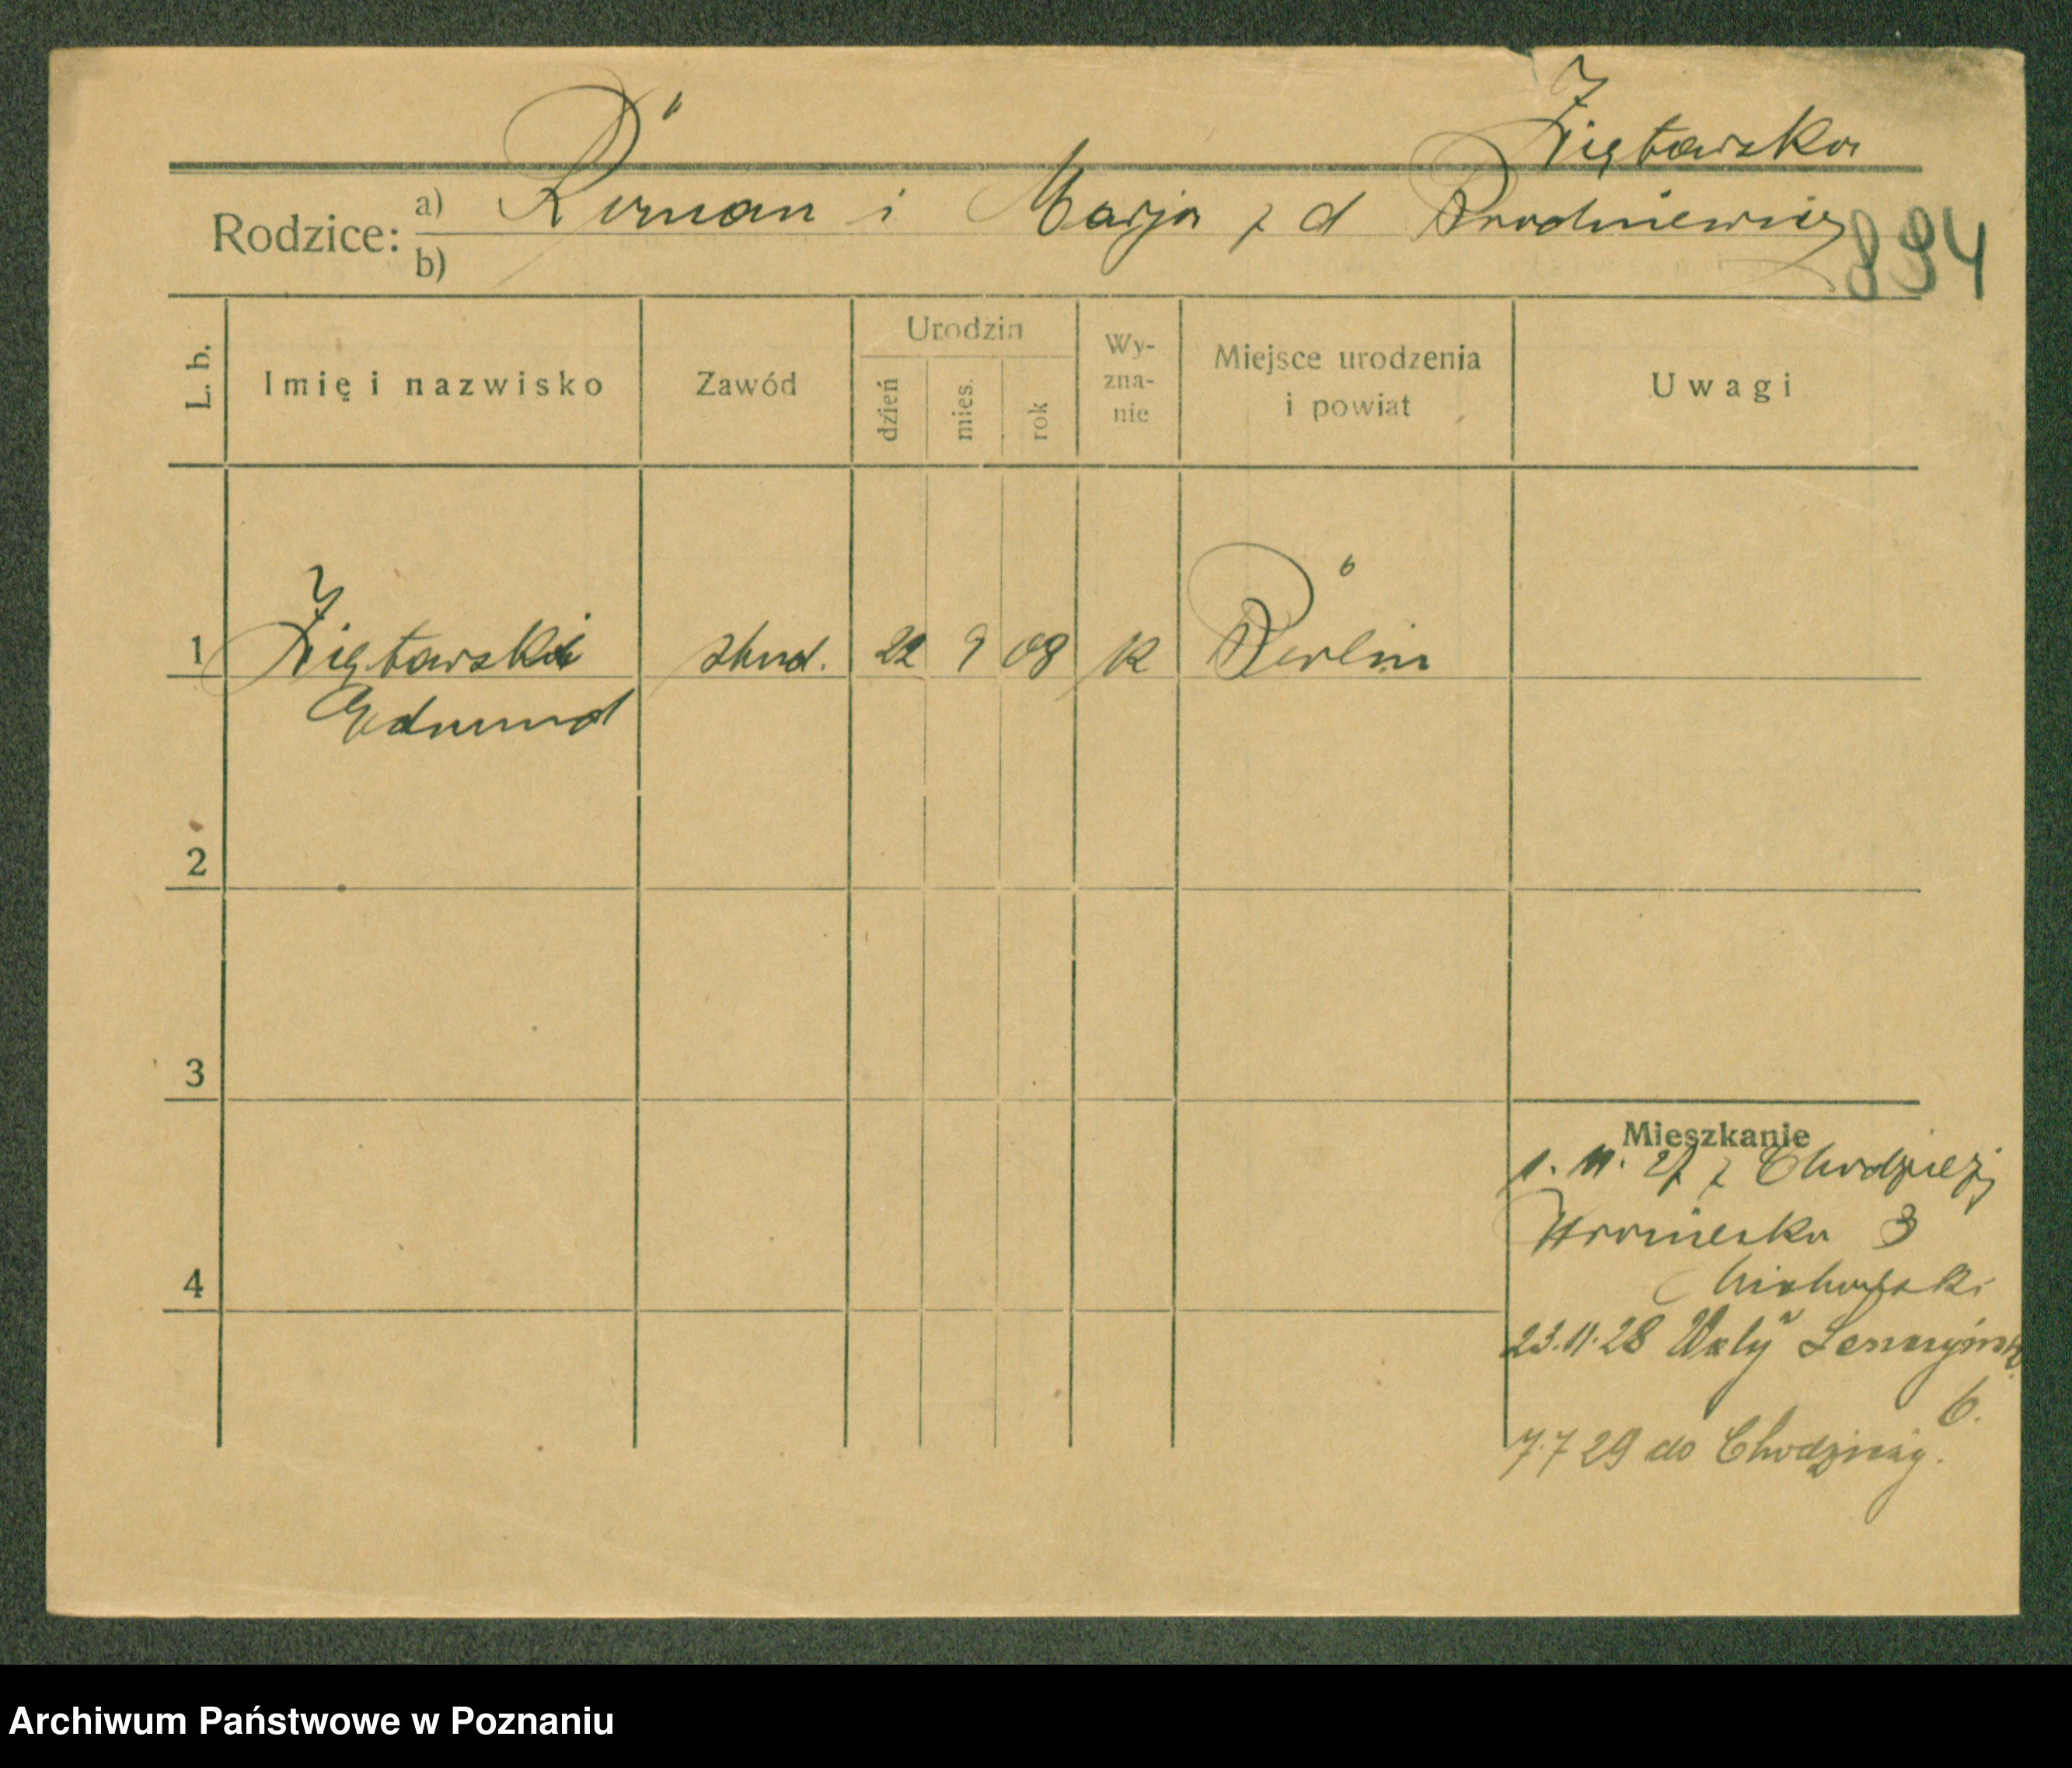 Ziętarska
Rodzice: a) Roman i Marja z d
b)
894
L. b.
Imię i nazwisko
Zawód
Urodzin
dzień
mies.
rok
Wy-
zna-
nie
Miejsce urodzenia
i powiat
Uwagi
1 Ziętarski stud. 22 9 08 k Berlin
Edmund
2
3
4
Mieszkanie
1. 11. 27 z Chodzieży
Wroniecka 3
23.11.28 Wały
6.
7.7 29 do Chodzieży.
Archiwum Państwowe w Poznaniu